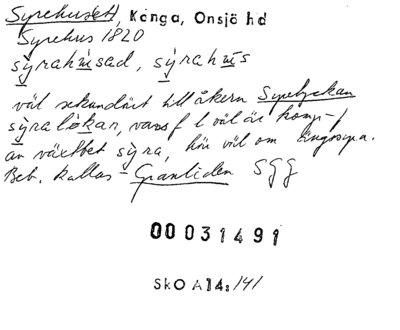 Syrehuset, Konga, Onsjö hd
Syrehus 1820
sỳrahúsad, sỳrahús
väl sekundärt till åkern Syrelyckan
sỳralókan, vars f l väl är komp-f
av växtbet sỳra, här väl om ängssyra.
Beb. kallas - Granliden SGG
00031491
SkO A14:141